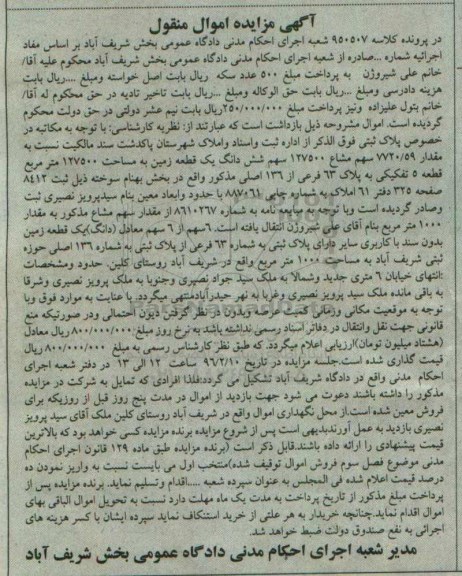 آگهی مزایده اموال منقول
در پرونده کلاسه ۹۵۰۵۰۷ شعبه اجرای احکام مدنی دادگاه عمومی بخش شریف آباد بر اساس مفاد
اجرائیه شماره ...صادره از شعبه اجرای احکام مدنی دادگاه عمومی بخش شریف آباد محکوم علیه آقا/
خانم علی شیروژن به پرداخت مبلغ ۵۰۰ عدد سکه ریال بابت اصل خواسته ومبلغ ....ریال بابت
هزینه دادرسی ومبلغ ...ریال بابت حق الوکاله ومبلغ ...ریال بابت تاخیر تادیه در حق محکوم له آقا/
خانم بتول علیزاده ونیز پرداخت مبلغ ۲۵۰/۰۰۰/۰۰۰ریال بابت نیم عشر دولتی در حق دولت محکوم
گردیده است. اموال مشروحه ذیل بازداشت است که عبارتند از: نظریه کارشناسی: با توجه به مکاتبه در
خصوص پلاک ثبتی فوق الذکر از اداره ثبت واسناد واملاک شهرستان پاکدشت سند مالکیت نسبت به
مقدار ۷۷۲۰/۵۹ سهم مشاع ۱۲۷۵۰۰ سهم شش دانگ یک قطعه زمین به مساحت ۱۲۷۵۰۰ متر مربع
قطعه ۵ تفکیکی به پلاک ۶۳ فرعی از ۱۳۶ اصلی مذکور واقع در بخش بهنام سوخته ذیل ثبت ۸۴۱۲
صفحه ۳۲۵ دفتر ۶۱ املاک به شماره چاپی ۸۸۷۰۶۱ با حدود وابعاد معین بنام سیدپرویز نصیری ثبت
وصادر گردیده است وبا توجه به مبایعه نامه به شماره ۸۶۱۰۲۶۷ از مقدار سهم مشاع مذکور به مقدار
۱۰۰۰ متر مربع بنام آقای علی شیروژن انتقال یافته است. ۶سهم از ۶ سهم معادل (دانگ)یک قطعه زمین
بدون سند با کاربری سایر دارای پلاک ثبتی به شماره ۶۳ فرعی از پلاک ثبتی به شماره ۱۳۶ اصلی حوزه
ثبتی شریف آباد به مساحت ۱۰۰۰ متر مربع واقع در شریف آباد روستای کلین حدود ومشخصات
:انتهای خیابان ۶ متری جدید وشمالا به ملک سید جواد نصیری وجنوبا به ملک پرویز نصیری وشرقا
به باقی مانده ملک سید پرویز نصیری وغربا به نهر حیدرآبادمنتهی میگردد. با عنایت به موارد فوق وبا
توجه به موقعیت مکانی وزمانی کمیت عرصه وبدون در نظر گرفتن دیون احتمالی ودر صورتیکه منع
قانونی جهت نقل وانتقال در دفاتر اسناد رسمی نداشته باشد به نرخ روز مبلغ ۸۰۰/۰۰۰/۰۰۰ریال معادل
(هشتاد میلیون تومان)ارزیابی اعلام میگردد. که طبق نظر کارشناس رسمی به مبلغ ۸۰۰/۰۰۰/۰۰۰ ریال
قیمت گذاری شده است.جلسه مزایده در تاریخ ۹۶/۲/۱۰ ساعت ۱۲ الی ۱۳ در دفتر شعبه اجرای
احکام مدنی واقع در دادگاه شریف آباد تشکیل می گردد:فلذا افرادی که تمایل به شرکت در مزایده
مذکور را داشته باشند دعوت می شود جهت بازدید از اموال در مدت پنج روز قبل از روزیکه برای
فروش معین شده است.از محل نگهداری اموال واقع در شریف آباد روستای کلین ملک آقای سید پرویز
نصیری بازدید به عمل آورندبدیهی است پس از شروع مزایده برنده مزایده کسی خواهد بود که بالاترین
قیمت پیشنهادی را ارائه داده باشند.قابل ذکر است (برنده مزایده طبق ماده ۱۲۹ قانون اجرای احکام
مدنی موضوع فصل سوم فروش اموال توقیف شده)منتخب اول می بایست نسبت به واریز نمودن ده
درصد قیمت اعلام شده فی المجلس به عنوان سپرده شعبه .....اقدام وتسلیم نماید. برنده مزایده پس از
پرداخت مبلغ مذکور از تاریخ پرداخت به مدت یک ماه مهلت دارد نسبت به تحویل اموال الباقی بهای
اموال اقدام نماید.چنانچه خریدار به هر علتی از خرید استنکاف نماید سپرده ایشان با کسر هزینه های
اجرائی به نفع صندوق دولت ضبط خواهد شد.
مدیر شعبه اجرای احکام مدنی دادگاه عمومی بخش شریف آباد